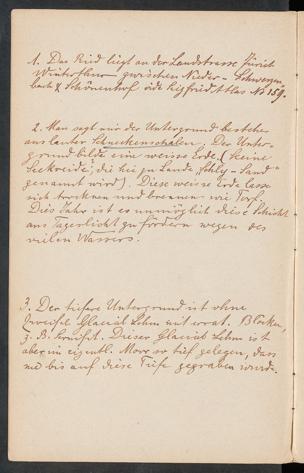 1. Das Ried liegt an der Landstrasse Zürich
Winterthur zwischen Nieder-Schwerzen-
bach & Schönenhof vide Siegfried Atlas No 159.
2. Man sagt mir der Untergrund bestehe
aus lauter Schneckenschalen. Der Unter-
grund bilde eine weisse Erde, (keine
Seekreide, die hie zu Lande „Schly-Sand"
genannt wird). Diese weisse Erde lasse
sich trocknen und brennen wie Torf.
Dies Jahr ist es unmöglich diese Schicht
ans Tageslicht zu fördern wegen des
vielen Wassers.
3. Der tiefere Untergrund ist ohne
Zweifel Glacial Lehm mit errat. Blöcken,
z. B. Sernifit. Dieser Glacial Lehm ist
aber im eigentl. Moor so tief gelegen, dass
nie bis auf diese Tiefe gegraben wurde.